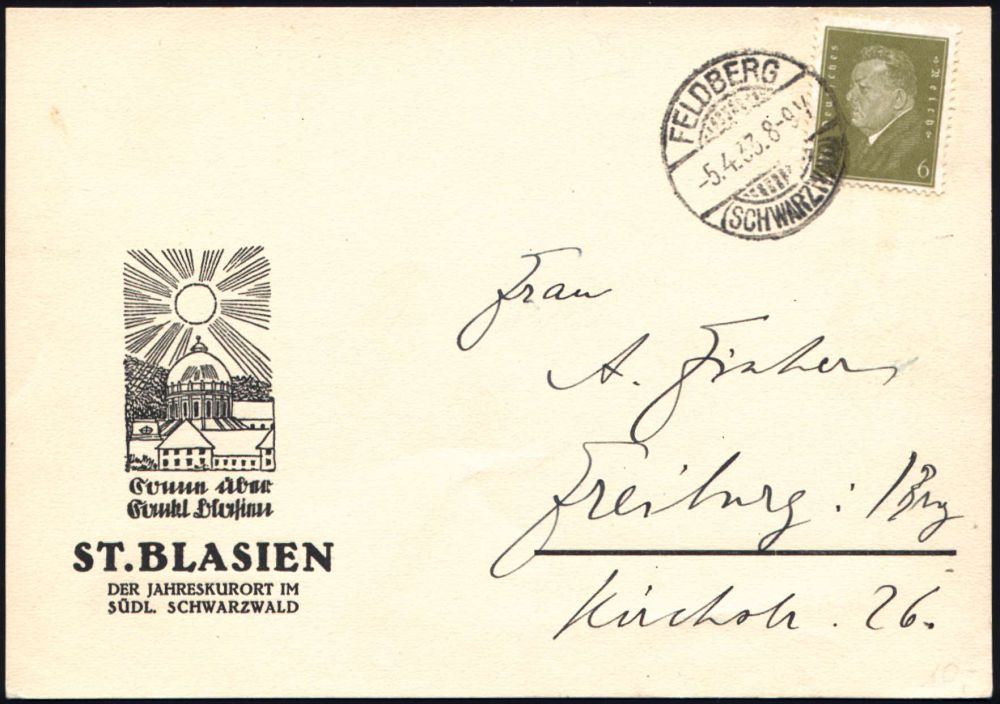 FELDBERG
-5.4.33.8-9V
(SCHWARZWALD)
Deutsches
Reich
6
Sonne über
Sankt Blasien
ST. BLASIEN
DER JAHRESKURORT IM
SÜDL. SCHWARZWALD
Frau
A. Fischer
Freiburg : /Brg
Kirchstr. 26.